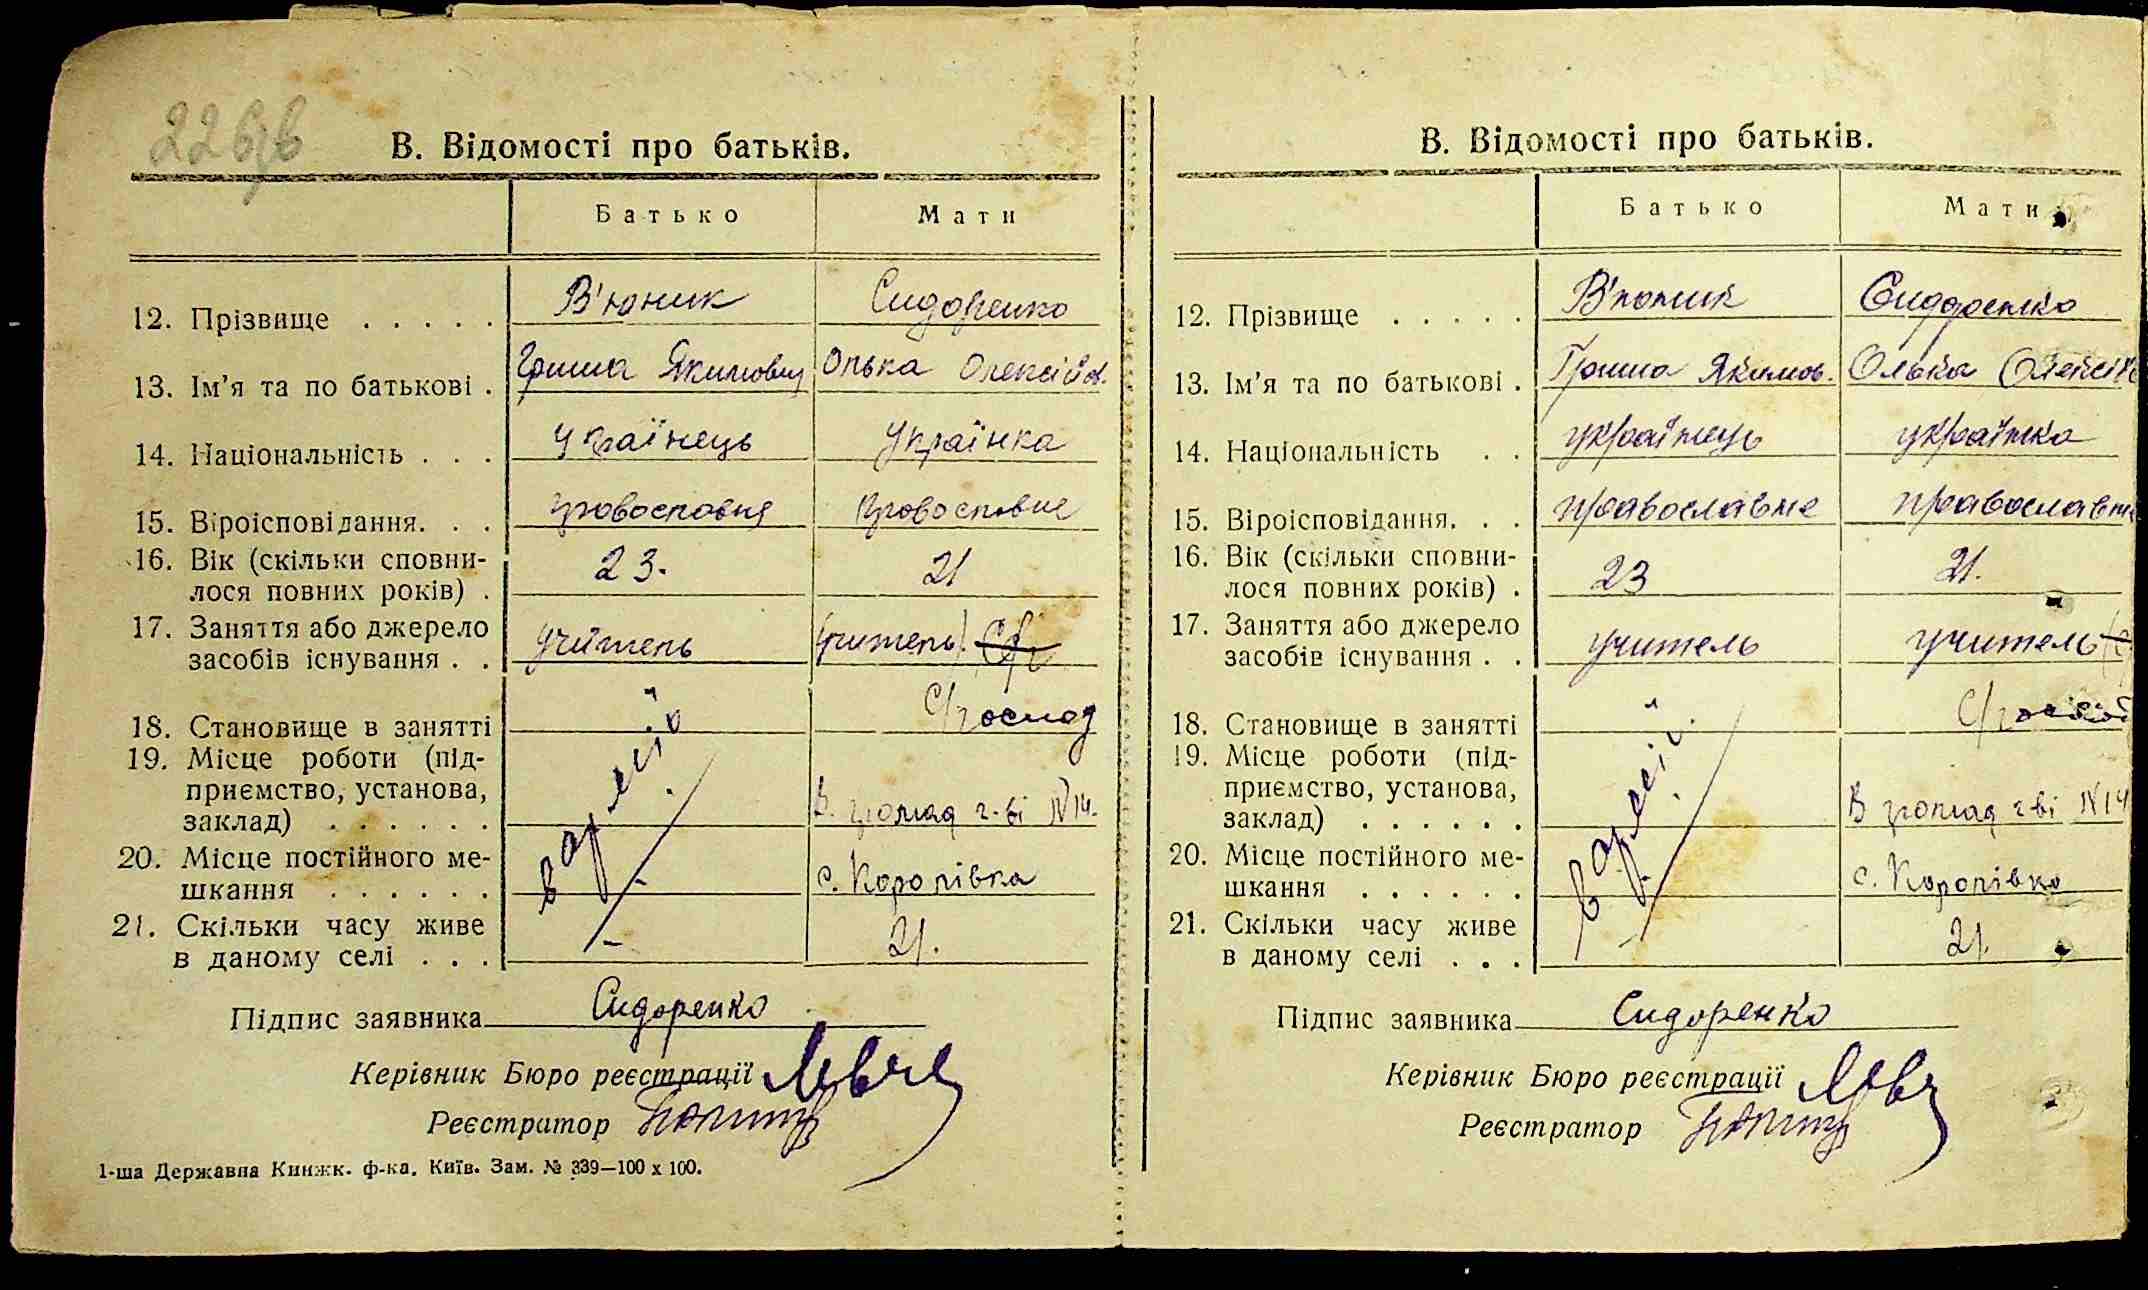 В. Відомості про батьків.
Батько Мати
12. Прізвище . . . . . В'юник Сидоренко
13. Ім'я та по батькові . Гриша Якимович Олька Олексіїв.
14. Національність . . . українець українка
15. Віроісповідання. . . православня православне
16. Вік (скільки сповни-
лося повних років) . 23. 21
17. Заняття або джерело
засобів існування . . учитель учитель.
18. Становище в занятті С/господ
19. Місце роботи (під-
приємство, установа,
заклад) . . . . . . В громад г-ві №14.
20. Місце постійного ме-
шкання . . . . . . с. Королівка
21. Скільки часу живе
в даному селі . . . 21.
в армії
Підпис заявника Сидоренко
Керівник Бюро реєстрації
Реєстратор
1-ша Державна Книжк. ф-ка. Київ. Зам. № 339—100 х 100.
В. Відомості про батьків.
Батько Мати
12. Прізвище . . . . . В'юник Сидоренко
13. Ім'я та по батькові . Гриша Якимов. Олька Олексіїв
14. Національність . . українець українка
15. Віроісповідання. . . православне православне
16. Вік (скільки сповни-
лося повних років) . 23 21.
17. Заняття або джерело
засобів існування . . учитель учитель
18. Становище в занятті С/господ
19. Місце роботи (під-
приємство, установа,
заклад) . . . . . . В громад г-ві №14
20. Місце постійного ме-
шкання . . . . . . с. Королівка
21. Скільки часу живе
в даному селі . . . 21.
в армії.
Підпис заявника Сидоренко
Керівник Бюро реєстрації
Реєстратор